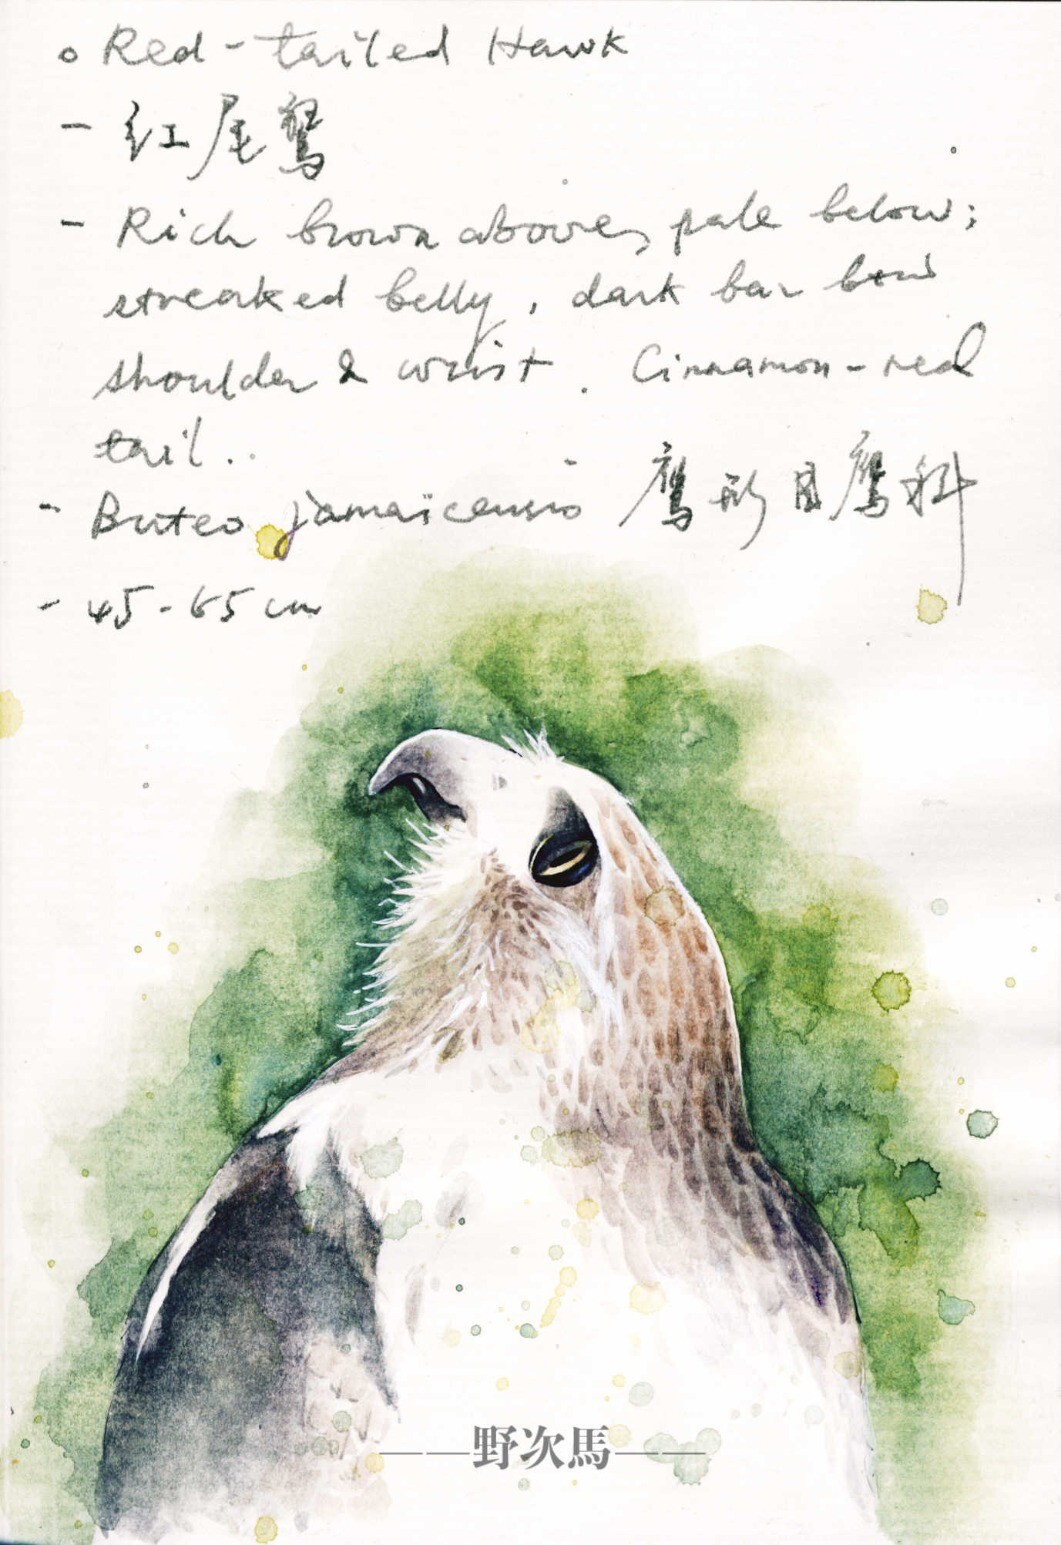 Red-tailed Hawk
- 红尾鵟
- Rich brown above, pale below;
streaked belly, dark bar btw
shoulder & wrist. Cinnamon-red
tail.
- Buteo jamaicensis 鹰形目鹰科
- 45-65cm
——野次馬——